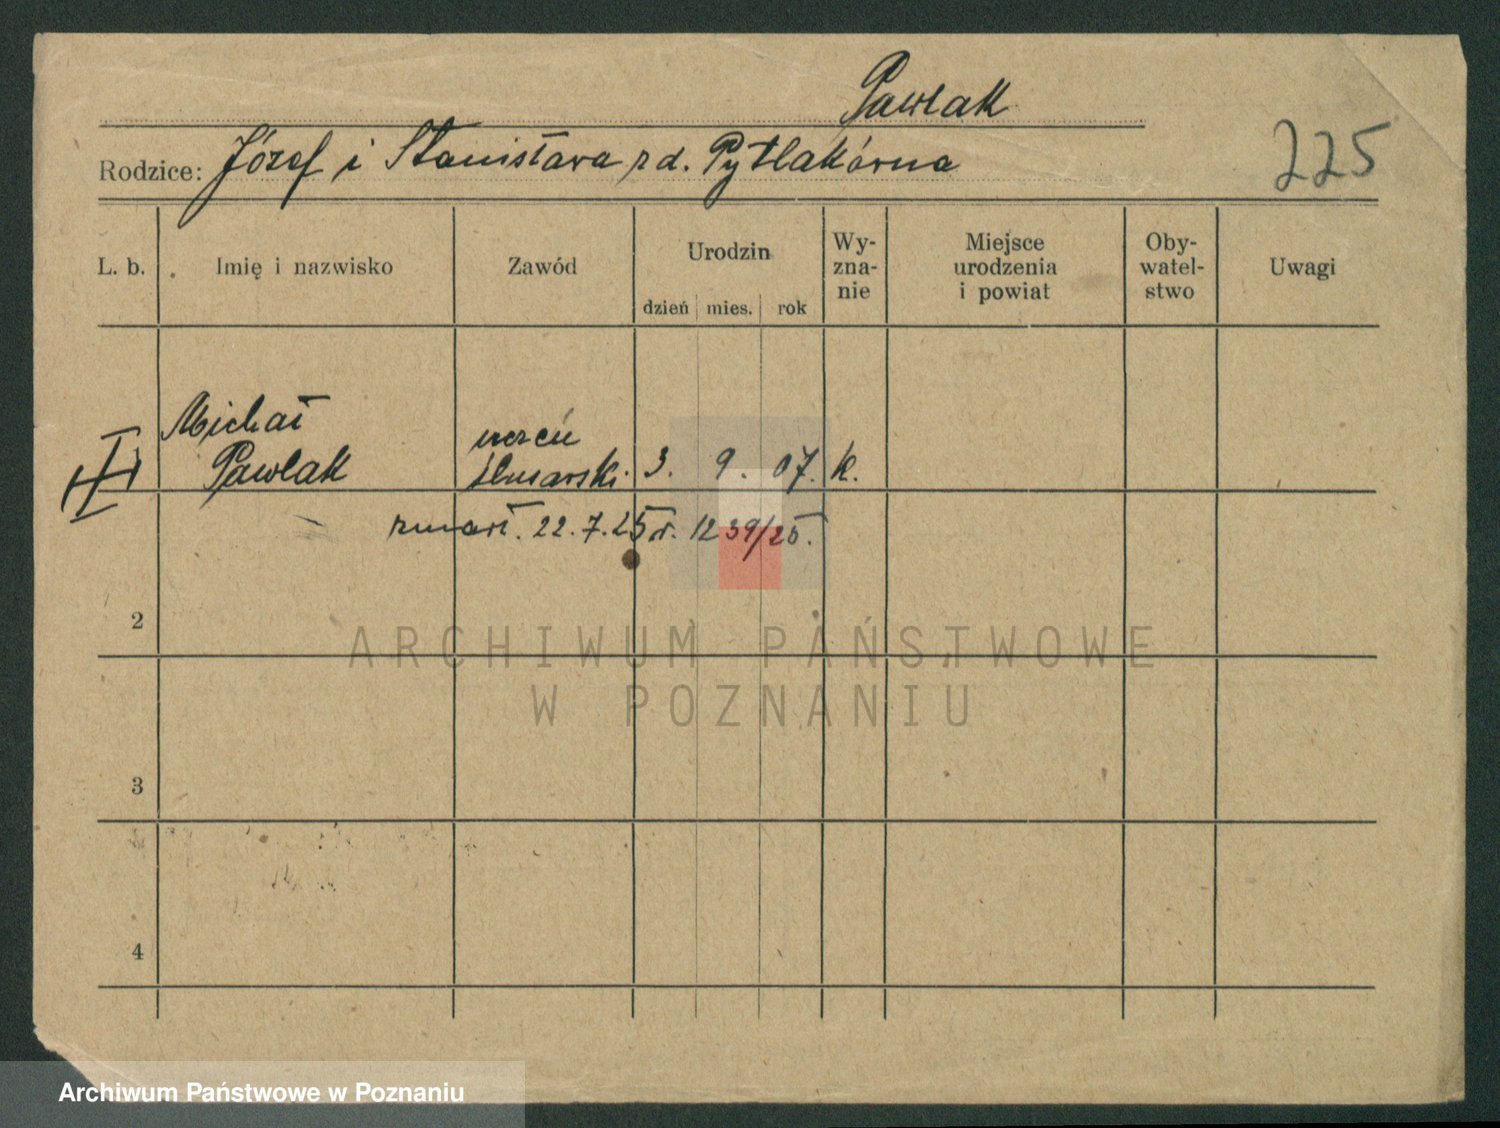 Pawlak
225
Rodzice: Józef i Stanisława rd. Pytlakówna
L. b. Imię i nazwisko Zawód Urodzin dzień mies. rok Wy-zna-nie Miejsce urodzenia i powiat Oby-watel-stwo Uwagi
Michał uczeń
Pawlak ślusarski. 3. 9. 07. k.
zmarł. 22.7.25 r. 1239/25.
2
ARCHIWUM PAŃSTWOWE
W POZNANIU
3
4
Archiwum Państwowe w Poznaniu